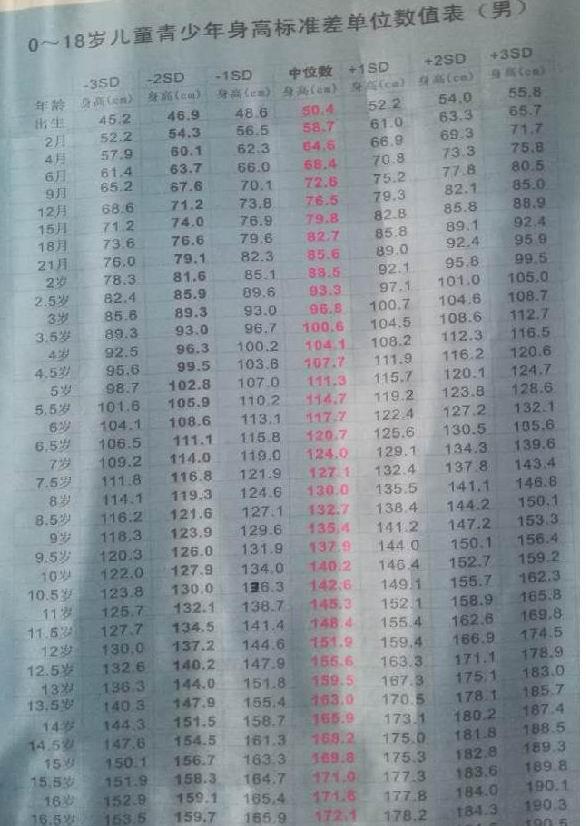 0～18岁儿童青少年身高标准差单位数值表（男）
-3SD -2SD -1SD 中位数 +1SD +2SD +3SD
年龄 身高(cm) 身高(cm) 身高(cm) 身高(cm) 身高(cm) 身高(cm) 身高(cm)
出生 45.2 46.9 48.6 50.4 52.2 54.0 55.8
2月 52.2 54.3 56.5 58.7 61.0 63.3 65.7
4月 57.9 60.1 62.3 64.6 66.9 69.3 71.7
6月 61.4 63.7 66.0 68.4 70.8 73.3 75.8
9月 65.2 67.6 70.1 72.6 75.2 77.8 80.5
12月 68.6 71.2 73.8 76.5 79.3 82.1 85.0
15月 71.2 74.0 76.9 79.8 82.8 85.8 88.9
18月 73.6 76.6 79.6 82.7 85.8 89.1 92.4
21月 76.0 79.1 82.3 85.6 89.0 92.4 95.9
2岁 78.3 81.6 85.1 88.5 92.1 95.8 99.5
2.5岁 82.4 85.9 89.6 93.3 97.1 101.0 105.0
3岁 85.6 89.3 93.0 96.8 100.7 104.6 108.7
3.5岁 89.3 93.0 96.7 100.6 104.5 108.6 112.7
4岁 92.5 96.3 100.2 104.1 108.2 112.3 116.5
4.5岁 95.6 99.5 103.8 107.7 111.9 116.2 120.6
5岁 98.7 102.8 107.0 111.3 115.7 120.1 124.7
5.5岁 101.6 105.9 110.2 114.7 119.2 123.8 128.6
6岁 104.1 108.6 113.1 117.7 122.4 127.2 132.1
6.5岁 106.5 111.1 115.8 120.7 125.6 130.5
7岁 109.2 114.0 119.0 124.0 129.1 134.3 139.6
7.5岁 111.8 116.8 121.9 127.1 132.4 137.8 143.4
8岁 114.1 119.3 124.6 130.0 135.5 141.1 146.8
8.5岁 116.2 121.6 127.1 132.7 138.4 144.2 150.1
9岁 118.3 123.9 129.6 135.4 141.2 147.2 153.3
9.5岁 120.3 126.0 131.9 137.9 144.0 150.1 156.4
10岁 122.0 127.9 134.0 140.2 146.4 152.7 159.2
10.5岁 123.8 130.0 136.3 142.6 149.1 155.7 162.3
11岁 125.7 132.1 138.7 145.3 152.1 158.9 165.8
11.5岁 127.7 134.5 141.4 148.4 155.4 162.6 169.8
12岁 130.0 137.2 144.6 151.9 159.4 166.9 174.5
12.5岁 132.6 140.2 147.9 155.6 163.3 171.1 178.9
13岁 136.3 144.0 151.8 159.5 167.3 175.1 183.0
13.5岁 140.3 147.9 155.4 163.0 170.5 178.1 185.7
14岁 144.3 151.5 158.7 165.9 173.1 180.2 187.4
14.5岁 147.6 154.5 161.3 168.2 175.0 181.8 188.5
15岁 150.1 156.7 163.3 169.8 175.3 182.8 189.3
15.5岁 151.9 158.3 164.7 171.0 177.3 183.6 189.8
16岁 152.9 159.1 165.4 171.6 177.8 184.0 190.1
16.5岁 153.5 159.7 165.9 172.1 178.2 184.3 190.3
190.5